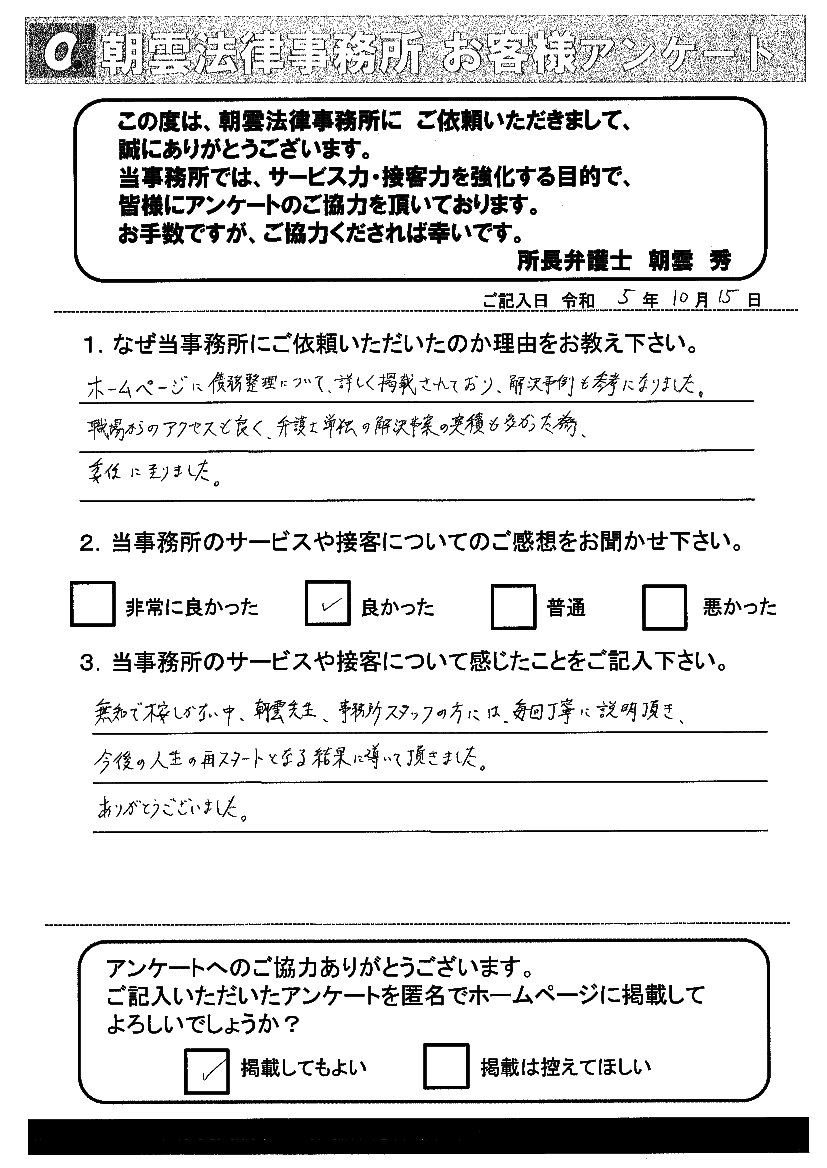 a 朝雲法律事務所 お客様アンケート
この度は、朝雲法律事務所に ご依頼いただきまして、
誠にありがとうございます。
当事務所では、サービス力・接客力を強化する目的で、
皆様にアンケートのご協力を頂いております。
お手数ですが、ご協力くだされば幸いです。
所長弁護士 朝雲 秀
ご記入日 令和 5 年 10 月 15 日
1．なぜ当事務所にご依頼いただいたのか理由をお教え下さい。
ホームページに債務整理について、詳しく掲載されており、解決事例も参考になりました。
職場からのアクセスも良く、弁護士単独の解決事案の実積も多かった為、
委任に至りました。
2．当事務所のサービスや接客についてのご感想をお聞かせ下さい。
非常に良かった ✓ 良かった 普通 悪かった
3．当事務所のサービスや接客について感じたことをご記入下さい。
無知で不安しかない中、朝雲先生、事務所スタッフの方には、毎回丁寧に説明頂き、
今後の人生の再スタートとなる結果に導いて頂きました。
ありがとうございました。
アンケートへのご協力ありがとうございます。
ご記入いただいたアンケートを匿名でホームページに掲載して
よろしいでしょうか？
✓ 掲載してもよい 掲載は控えてほしい